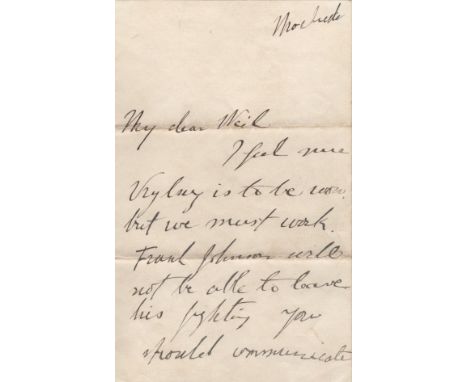 My dear Weil
I feel sure
Vryburg is to be won
but we must work.
Frank Johnson will
not be able to leave
his fighting you
should communicate